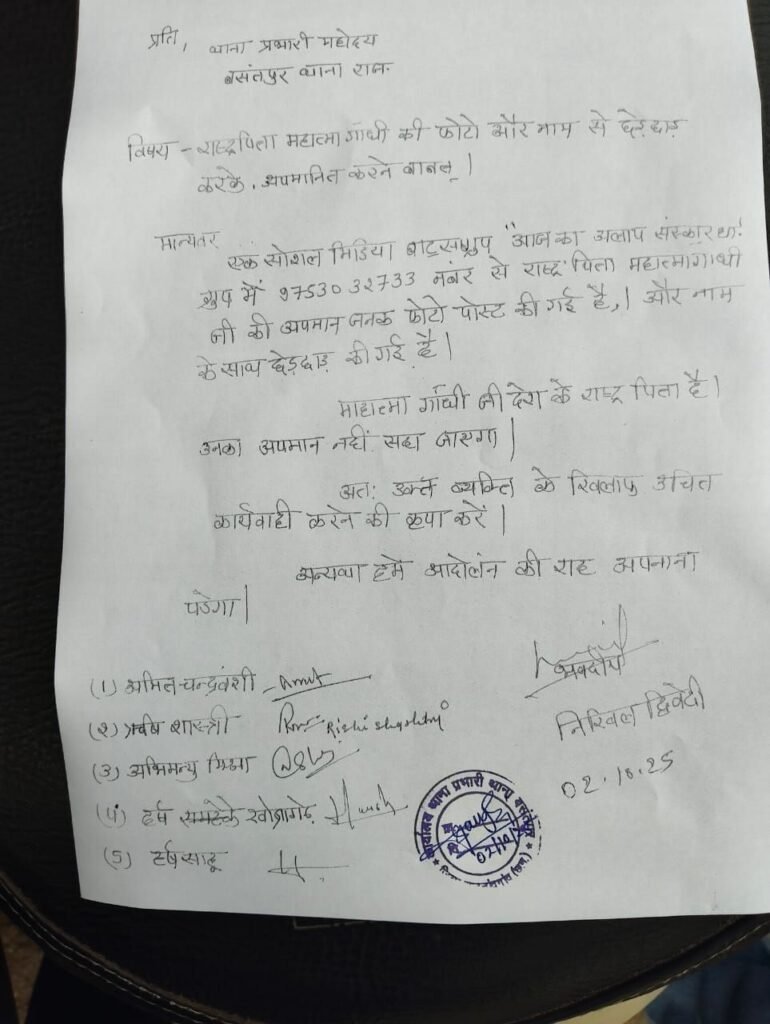 प्रति,
थाना प्रभारी महोदय
बसंतपुर थाना राज.
विषय - राष्ट्रपिता महात्मा गाँधी की फोटो और नाम से छेड़छाड़
करके, अपमानित करने बाबत् |
मान्यवर
एक सोशल मिडिया वाट्सप ग्रुप "आज का अलाप संस्कार
ग्रुप में 9753032733 नंबर से राष्ट्र पिता महात्मा गाँधी
जी की अपमान जनक फोटो पोस्ट की गई है, | और नाम
के साथ छेड़छाड़ की गई है |
माहात्मा गाँधी जी देश के राष्ट्र पिता है |
उनका अपमान नहीं सहा जाएगा |
अतः उक्त व्यक्ति के खिलाफ उचित
कार्यवाही करने की कृपा करें |
अन्यथा हमे आदोलंन की राह अपनाना
पडेगा |
भवदीय
(1) अमित चन्द्रवंशी Amit
निखिल द्विवेदी
(२) ऋषि शास्त्री Rishi Shashtri
(3) अभिमन्यु मिश्रा
02.10.25
(4) हर्ष खोब्रागढ़े Harsh
(5) हर्ष साहू
कार्यालय थाना प्रभारी थाना बसंतपुर
02/10/25